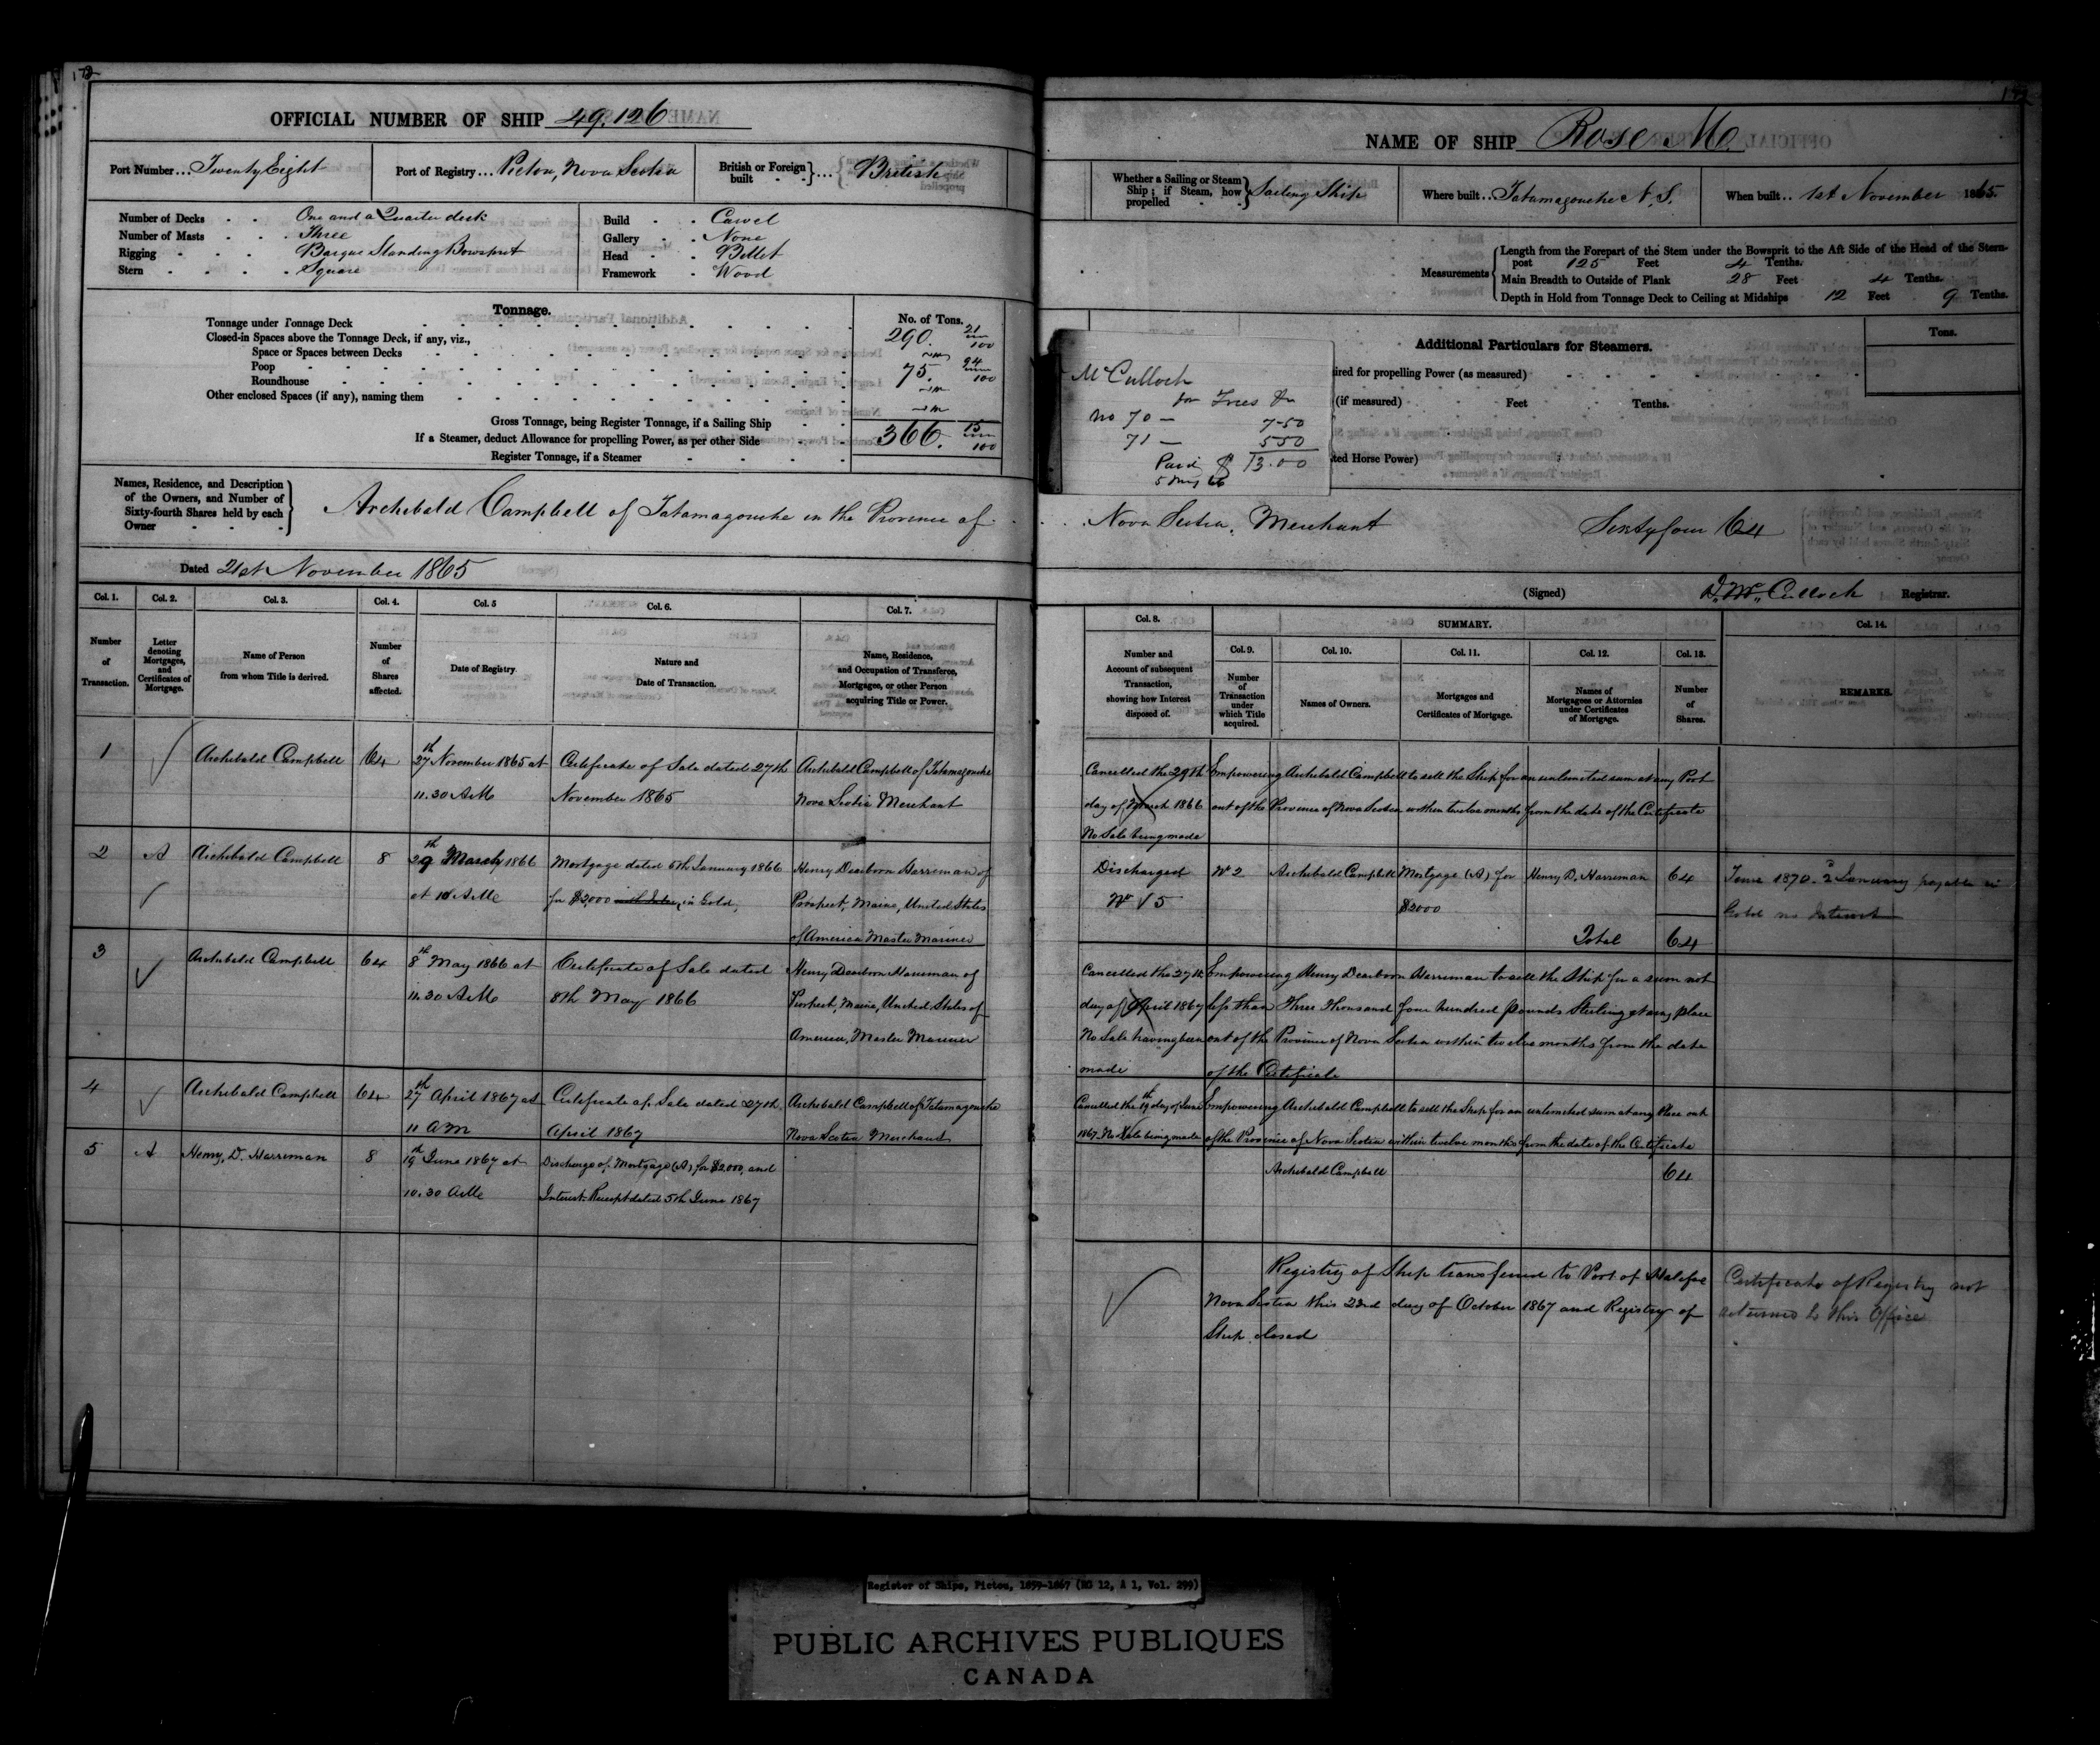 OFFICIAL NUMBER OF SHIP 49,126
Port Number... Twenty Eight
Port of Registry... Pictou, Nova Scotia
British or Foreign built } ... British
Number of Decks One and a Quarter deck
Number of Masts Three
Rigging Barque Standing Bowsprit
Stern Square
Build Carvel
Gallery None
Head Billet
Framework Wood
Tonnage.
No. of Tons.
Tonnage under Tonnage Deck 290. 21/100
Closed-in Spaces above the Tonnage Deck, if any, viz.,
Space or Spaces between Decks
Poop 75. 94/100
Roundhouse
Other enclosed Spaces (if any), naming them
Gross Tonnage, being Register Tonnage, if a Sailing Ship 366. 15/100
If a Steamer, deduct Allowance for propelling Power, as per other Side
Register Tonnage, if a Steamer
NAME OF SHIP Rose Mc
Whether a Sailing or Steam Ship; if Steam, how propelled } Sailing Ship
Where built.. Tatamagouche N.S.
When built.. 1st November 1865.
Measurements
Length from the Forepart of the Stem under the Bowsprit to the Aft Side of the Head of the Stern-
post 125 Feet 4 Tenths.
Main Breadth to Outside of Plank 28 Feet 4 Tenths.
Depth in Hold from Tonnage Deck to Ceiling at Midships 12 Feet 9 Tenths.
Additional Particulars for Steamers.
Tons.
ired for propelling Power (as measured)
(if measured) Feet Tenths.
ted Horse Power)
McCulloch
for Fees
No 70 — 7-50
71 — 5 50
Paid $ 13.00
Names, Residence, and Description
of the Owners, and Number of
Sixty-fourth Shares held by each
Owner
Archibald Campbell of Tatamagouche in the Province of
Nova Scotia, Merchant Sixtyfour 64
Dated 21st November 1865
(Signed) D. McCulloch Registrar.
Col. 1. Number of Transaction.
Col. 2. Letter denoting Mortgages, and Certificates of Mortgage.
Col. 3. Name of Person from whom Title is derived.
Col. 4. Number of Shares affected.
Col. 5 Date of Registry
Col. 6. Nature and Date of Transaction.
Col. 7. Name, Residence, and Occupation of Transferee, Mortgagee, or other Person acquiring Title or Power.
Col. 8. Number and Account of subsequent Transaction, showing how Interest disposed of.
SUMMARY.
Col. 9. Number of Transaction under which Title acquired.
Col. 10. Names of Owners.
Col. 11. Mortgages and Certificates of Mortgage.
Col. 12. Names of Mortgagees or Attornies under Certificates of Mortgage.
Col. 13. Number of Shares.
Col. 14. REMARKS.
1 Archibald Campbell 64 27th November 1865 at Certificate of Sale dated 27th Archibald Campbell of Tatamagouche
11.30 AM November 1865 Nova Scotia Merchant
Cancelled the 29th Empowering Archibald Campbell to sell the Ship for an unlimited sum at any Port
day of March 1866 out of the Province of Nova Scotia within twelve months from the date of the Certificate
No Sale being made
2 A Archibald Campbell 8 29th March 1866 Mortgage dated 5th January 1866 Henry Dearborn Harriman of
at 10 AM for $2,000 in Gold, Prospect, Maine, United States
of America Master Mariner
Discharged No 2 Archibald Campbell Mortgage (A) for Henry D. Harriman 64
No 5 $2000
Total 64
June 1870. 2 January payable in
Gold no Interest
3 Archibald Campbell 64 8th May 1866 at Certificate of Sale dated Henry Dearborn Harriman of
11.30 AM 8th May 1866 Prospect, Maine, United States of
America, Master Mariner
Cancelled the 27th Empowering Henry Dearborn Harriman to sell the Ship for a sum not
day of April 1867 less than Three Thousand four hundred pounds Sterling at any place
No Sale having been out of the Province of Nova Scotia within twelve months from the date
made of the Certificate
4 Archibald Campbell 64 27th April 1867 at Certificate of Sale dated 27th Archibald Campbell of Tatamagouche
11 AM April 1867 Nova Scotia Merchant
Cancelled the 19th day of June Empowering Archibald Campbell to sell the Ship for an unlimited sum at any Place out
1867. No Sale being made of the Province of Nova Scotia within twelve months from the date of the Certificate
5 A Henry, D. Harriman 8 19th June 1867 at Discharge of Mortgage (A) for $2000, and
10.30 AM Interest. Receipt dated 5th June 1867
Archibald Campbell 64
Registry of Ship transferred to Port of Halifax
Nova Scotia this 22nd day of October 1867 and Registry of
Ship closed
Certificate of Registry not
returned to this Office
Register of Ships, Pictou, 1859-1867 (RG 12, A 1, Vol. 299)
PUBLIC ARCHIVES PUBLIQUES
CANADA